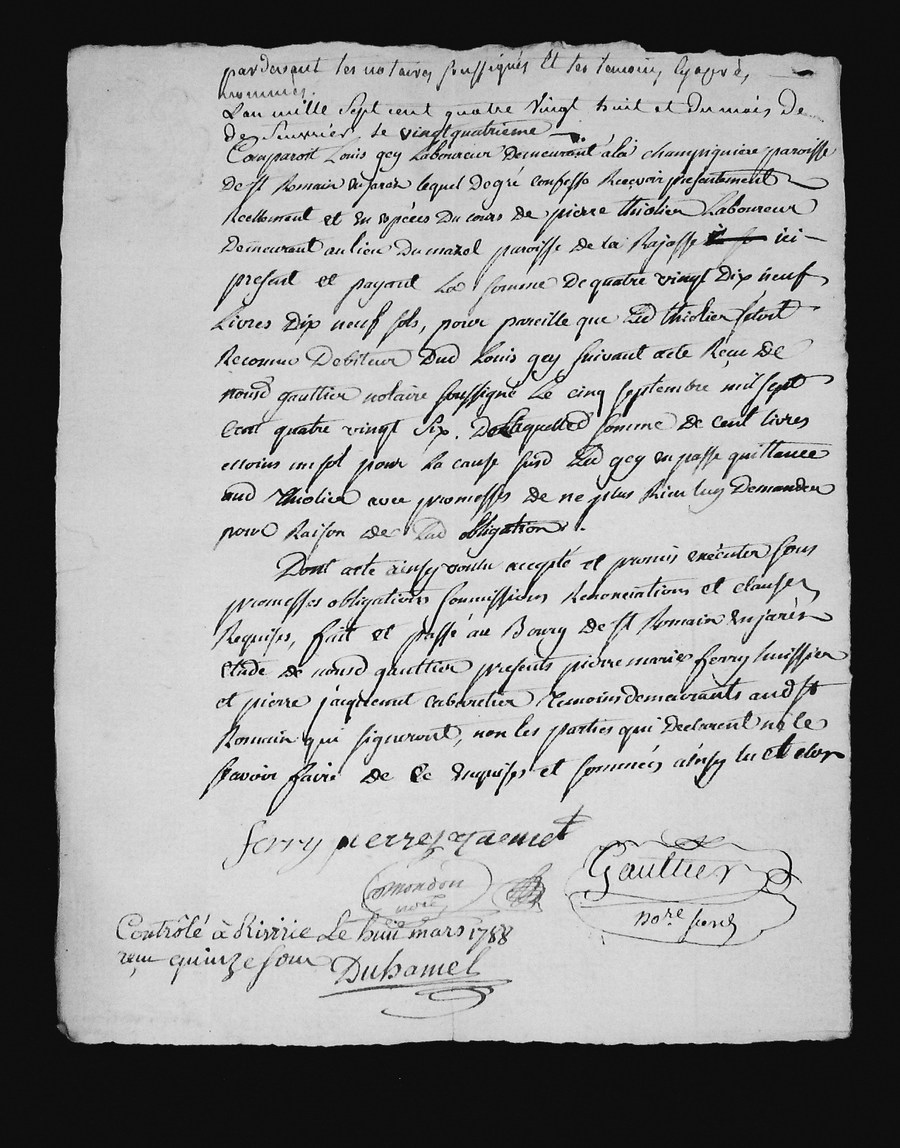 pardevant les notaires soussignés Et les temoins cy aprés
nommés.
L'an mille sept cent quatre vingt huit et du mois De
de fevrier le vingtquatrieme
Comparoit Louis gey Laboureur Demeurant à la champiquiere paroisse
De st Romain en jarez lequel De gré confesse Recevoir presentement
Reellement et en espèces Du cours de pierre thiolier Laboureur
Demeurant au lieu Du mazel paroisse de La Rajasse ici
present et payant La somme De quatre vingt Dix neuf
Livres Dix neuf sols, pour pareille que Led thiolier s'etoit
Reconnu Debiteur Dud Louis gey suivant acte Reçu De
nousd gaultier notaire soussigné Le cinq septembre mil sept
Cent quatre vingt six. De Laquelled somme De cent livres
moins un sol pour La cause susd Led gey en passe quittance
aud thiolier avec promesses de ne plus Rien luy Demander
pour Raison de Lad obligation.
Dont acte ainsy voulu accepté et promis exécuter sous
promesses obligations soumissions Renonciations et clauses
Requises, fait et passé au Bourg De st Romain en jarès
Etude de nousd gaultier presents pierre marie ferry huissier
et pierre jacquemet cabaretier Temoins demeurants aud st
Romain qui signeront, non les parties qui Declarent ne le
sçavoir faire de ce Enquises et sommés ainsy lu et clos
ferry pierre jaqemet
nore
Gaultier
nore
Contrôlé à Riverie Le huit mars 1788
reçu quinze sous
Duhamel